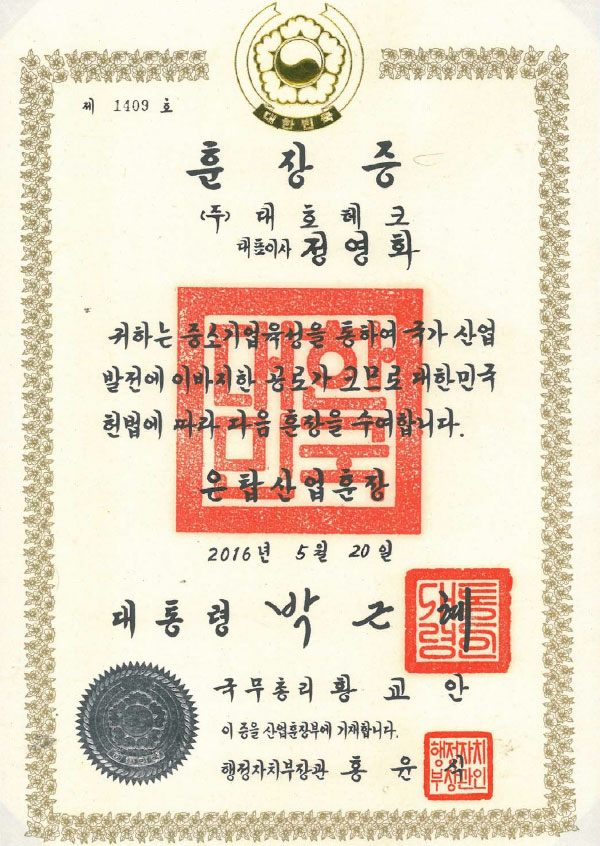 대한민국
제 1409 호
훈장증
(주) 대호테크
대표이사 정영화
귀하는 중소기업육성을 통하여 국가 산업
발전에 이바지한 공로가 크므로 대한민국
헌법에 따라 다음 훈장을 수여합니다.
대한민국
은탑산업훈장
2016년 5월 20일
대통령 박근혜
대통령인
국무총리 황교안
이 증을 산업훈장부에 기재합니다.
행정자치부장관 홍윤식
행정자치
부장관인